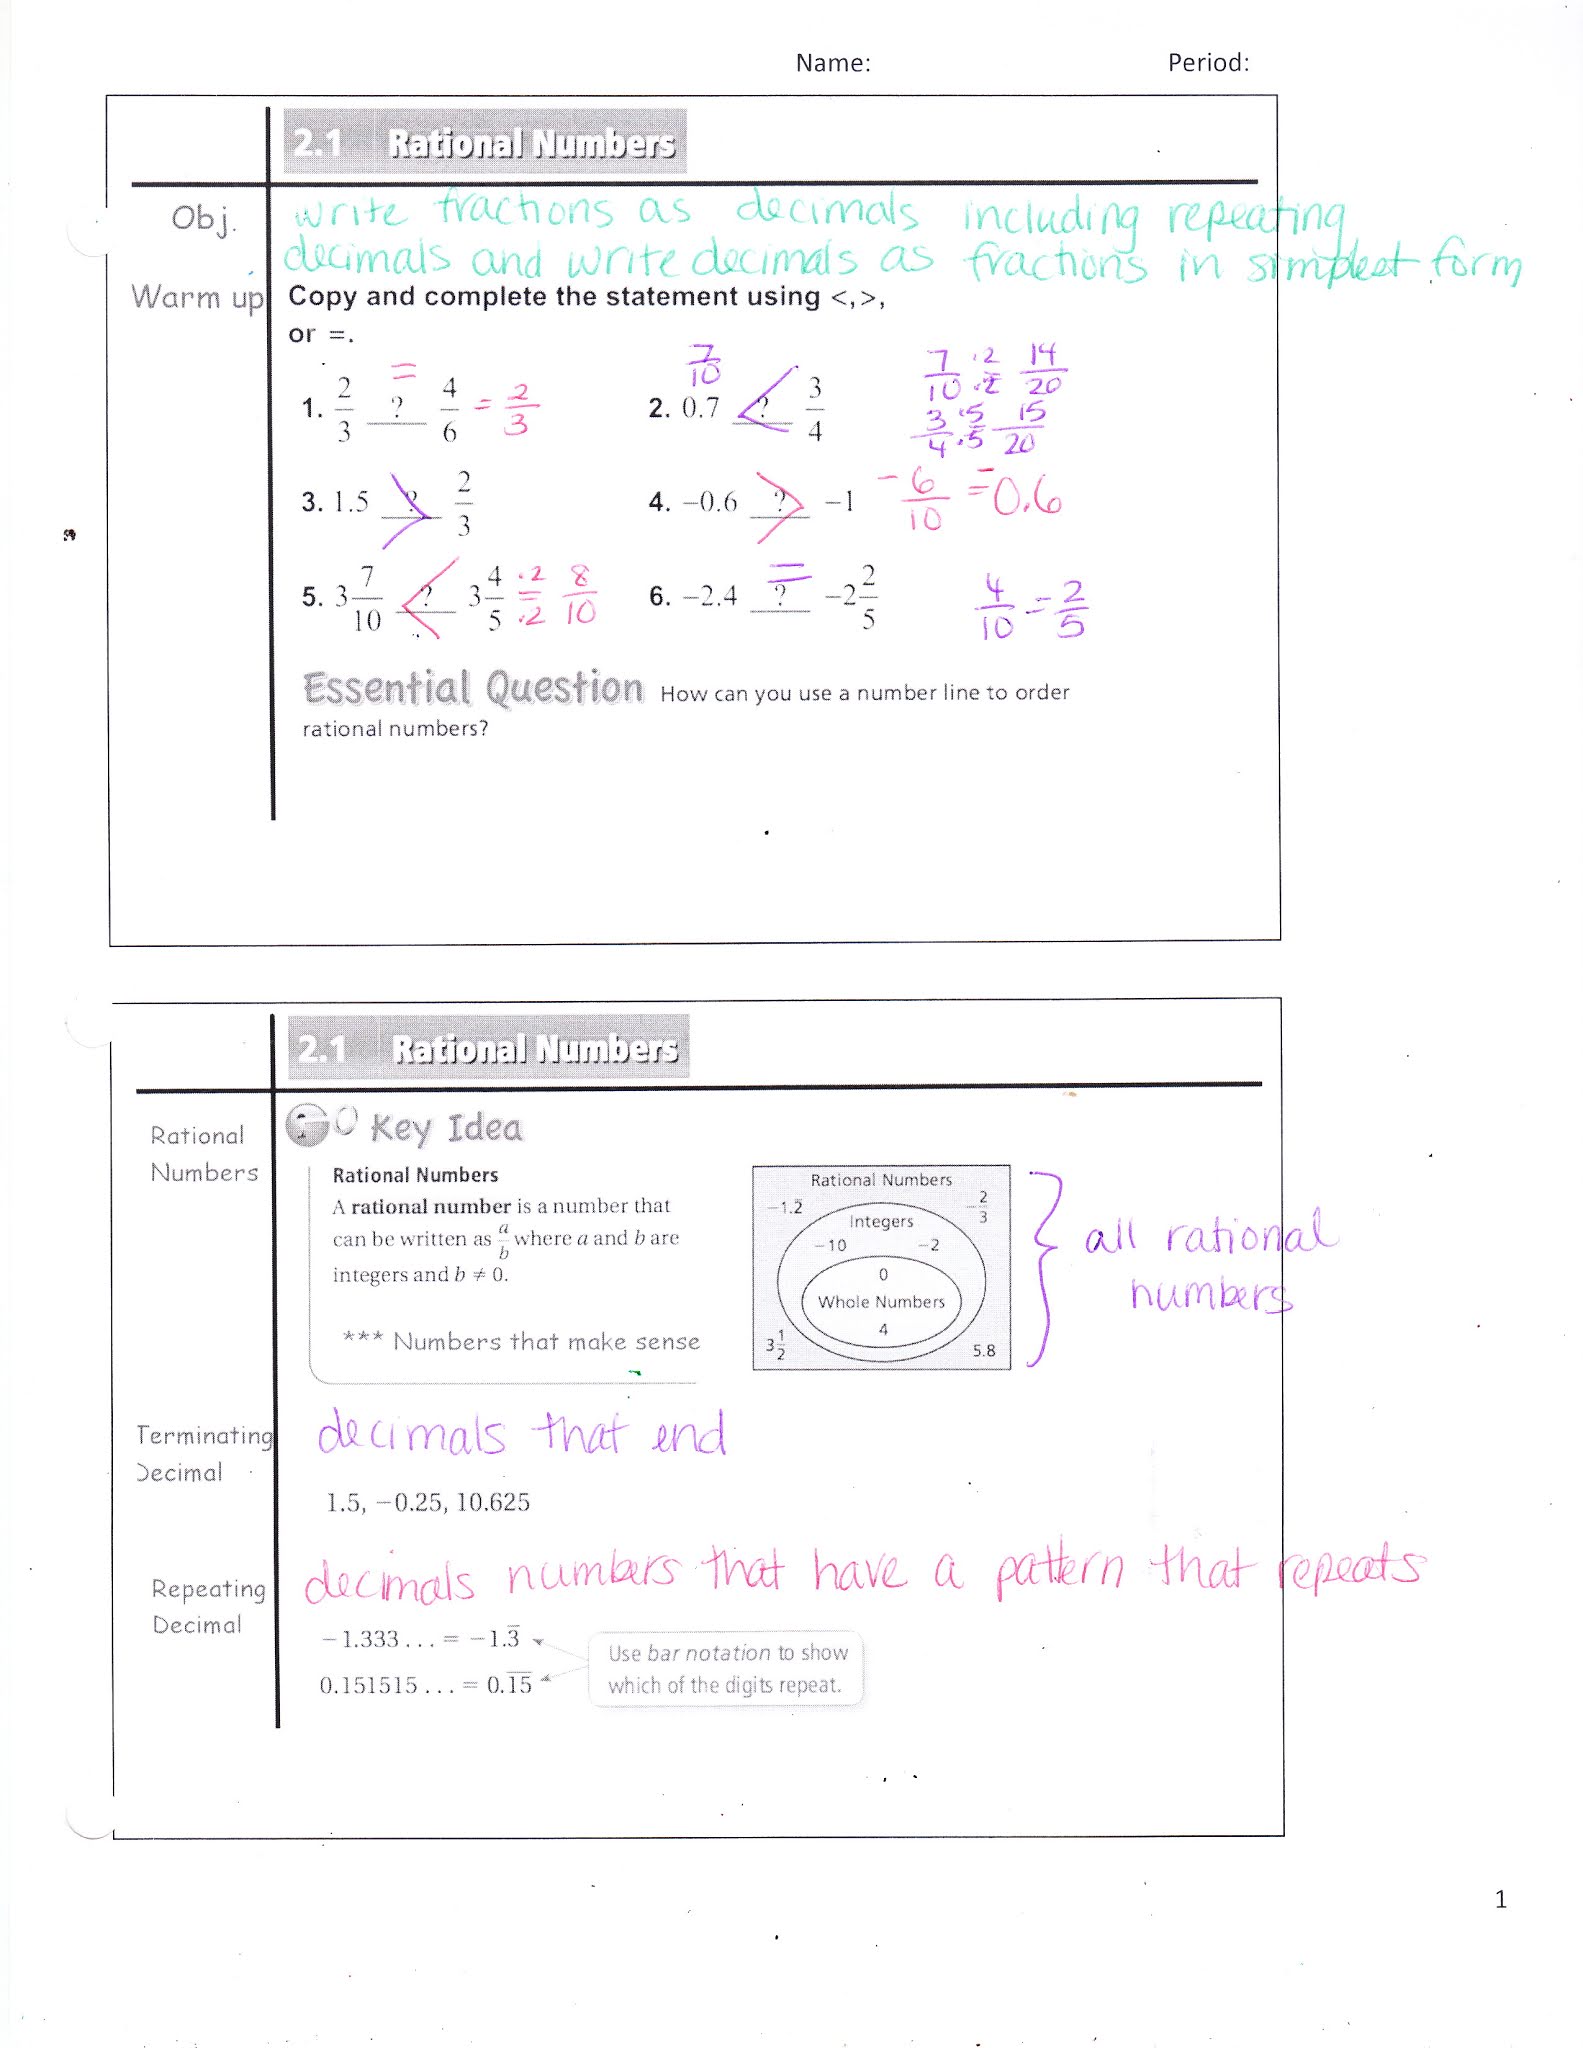 Name: Period:
2.1 Rational Numbers
Obj. write fractions as decimals including repeating
decimals and write decimals as fractions in simplest form
Warm up Copy and complete the statement using <,>,
or =.
1. 2/3 = ? 4/6 = 2/3
2. 0.7 7/10 < ? 3/4 7/10 ·2/·2 = 14/20
3/4 ·5/·5 = 15/20
3. 1.5 > ? 2/3
4. −0.6 > ? −1 −6/10 = −0.6
5. 3 7/10 < ? 3 4/5 ·2/·2 = 8/10
6. −2.4 = ? −2 2/5 4/10 = 2/5
Essential Question How can you use a number line to order
rational numbers?
2.1 Rational Numbers
Rational
Numbers
Key Idea
Rational Numbers
A rational number is a number that
can be written as a/b where a and b are
integers and b ≠ 0.
*** Numbers that make sense
Rational Numbers
−1.2̅ −2/3
Integers
−10 −2
0
Whole Numbers
4
3 1/2 5.8
all rational
numbers
Terminating
Decimal
decimals that end
1.5, −0.25, 10.625
Repeating
Decimal
decimals numbers that have a pattern that repeats
−1.333 . . . = −1.3̅
0.151515 . . . = 0.1̅5̅
Use bar notation to show
which of the digits repeat.
1